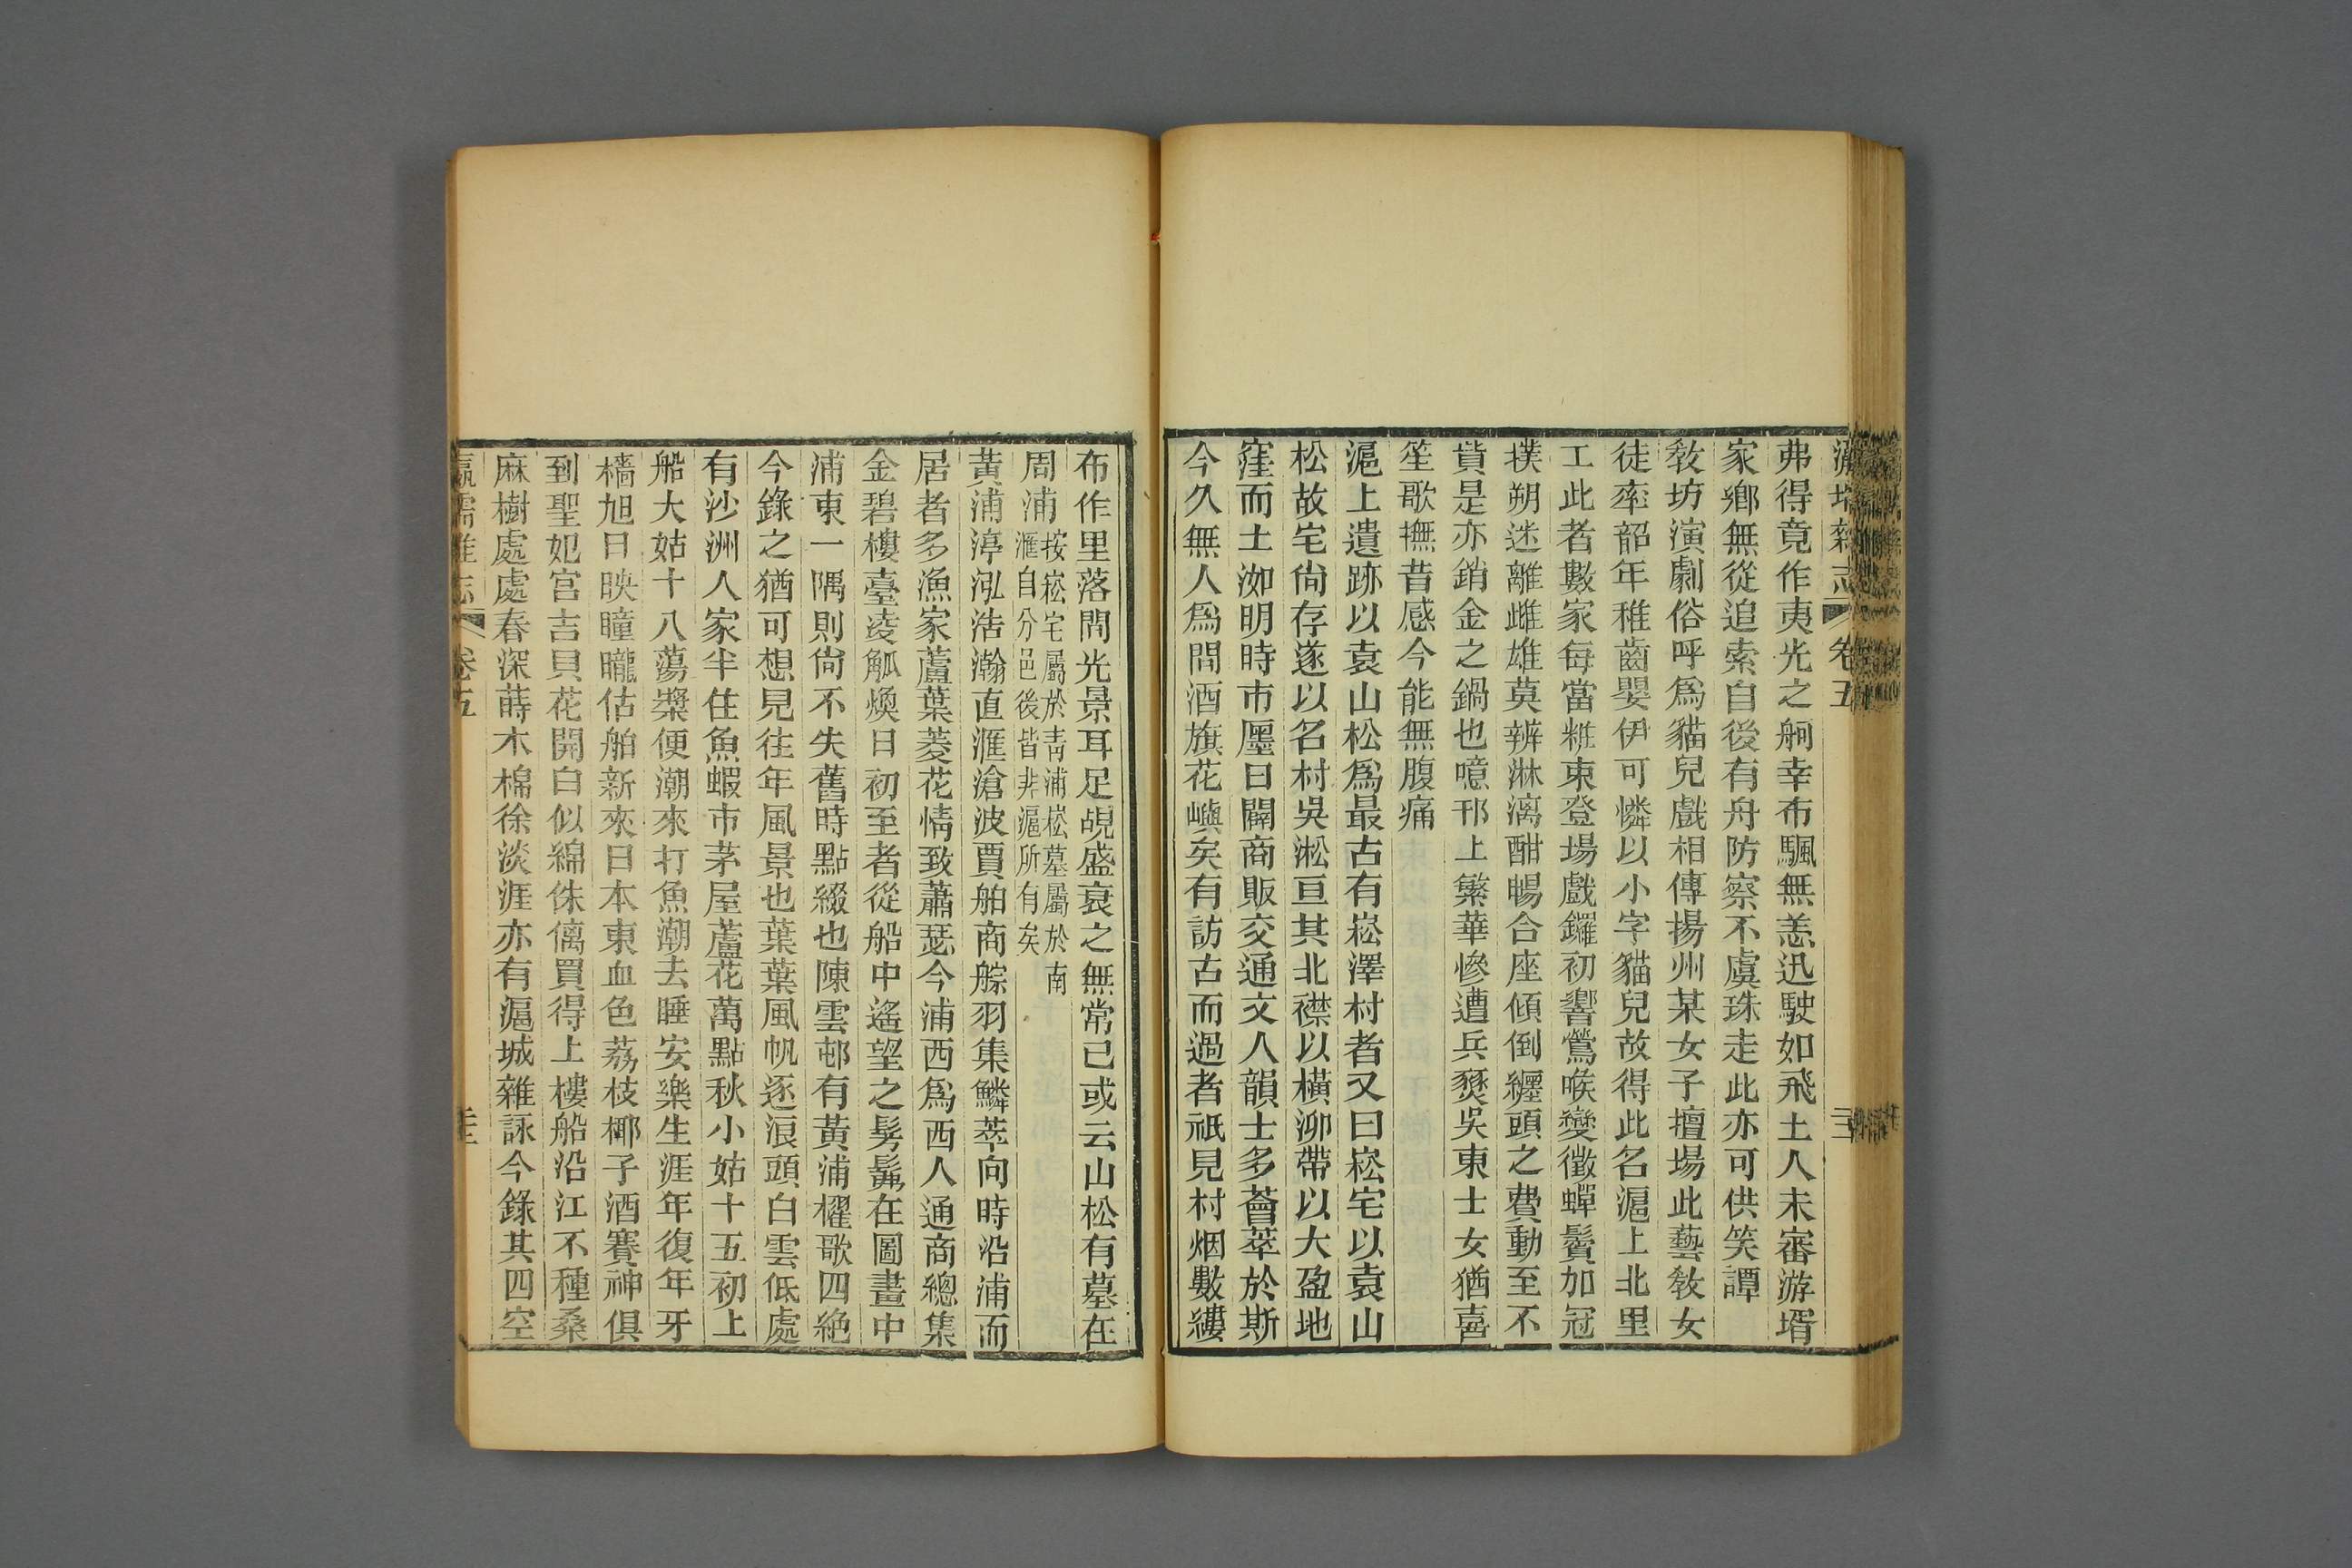 瀛壖雜志 卷五
弗得竟作夷光之舸幸布颿無恙迅駛如飛土人未審游壻
家鄉無從追索自後有舟防察不虞珠走此亦可供笑譚
敎坊演劇俗呼爲貓兒戲相傳揚州某女子擅場此藝敎女
徒率韶年稚齒嬰伊可憐以小字貓兒故得此名滬上北里
工此者數家每當粧束登場戲鑼初響鶯喉變徵蟬鬢加冠
撲朔迷離雌雄莫辨淋漓酣暢合座傾倒纏頭之費動至不
貲是亦銷金之鍋也噫邗上繁華慘遭兵燹吳東士女猶喜
笙歌撫昔感今能無腹痛
滬上遺跡以袁山松爲最古有崧澤村者又曰崧宅以袁山
松故宅尙存遂以名村吳淞亘其北襟以橫泖帶以大盈地
窪而土洳明時市廛日闢商販交通文人韻士多薈萃於斯
今久無人爲問酒旗花嶼矣有訪古而過者祇見村烟數縷
布作里落閒光景耳足覘盛衰之無常已或云山松有墓在
周浦按崧宅屬於靑浦崧墓屬於南
滙自分邑後皆非滬所有矣
黃浦渟泓浩瀚直滙滄波賈舶商艅羽集鱗萃向時沿浦而
居者多漁家蘆葉菱花情致蕭瑟今浦西爲西人通商總集
金碧樓臺凌觚煥日初至者從船中遙望之髣髴在圖畫中
浦東一隅則尙不失舊時點綴也陳雲邨有黃浦櫂歌四絶
今錄之猶可想見往年風景也葉葉風帆逐浪頭白雲低處
有沙洲人家半住魚蝦市茅屋蘆花萬點秋小姑十五初上
船大姑十八蕩槳便潮來打魚潮去睡安樂生涯年復年牙
檣旭日映瞳曨估舶新來日本東血色荔枝椰子酒賽神俱
到聖妃宫吉貝花開白似綿侏儷買得上樓船沿江不種桑
麻樹處處春深蒔木棉徐淡涯亦有滬城雜詠今錄其四空
瀛壖雜志 卷五